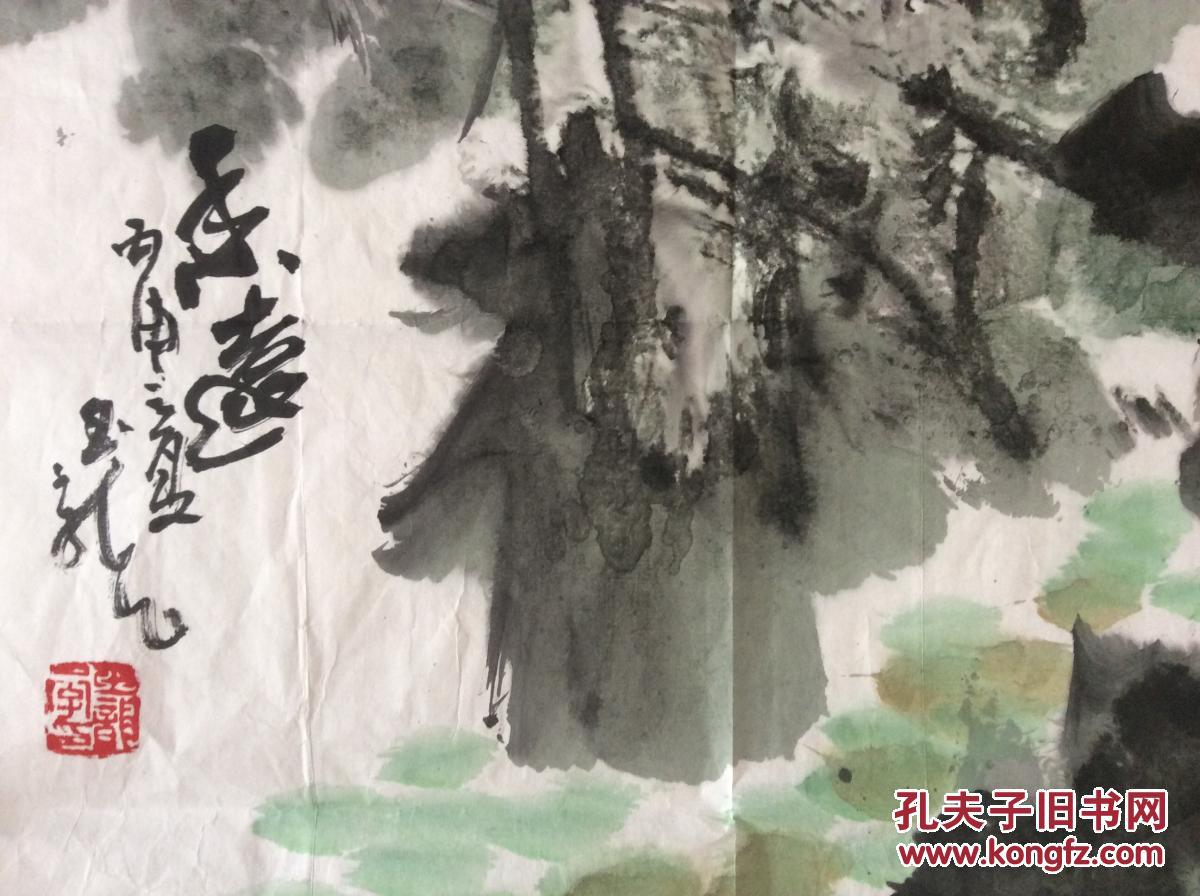 香远
丙申之夏
玉龙
孔夫子旧书网
www.kongfz.com